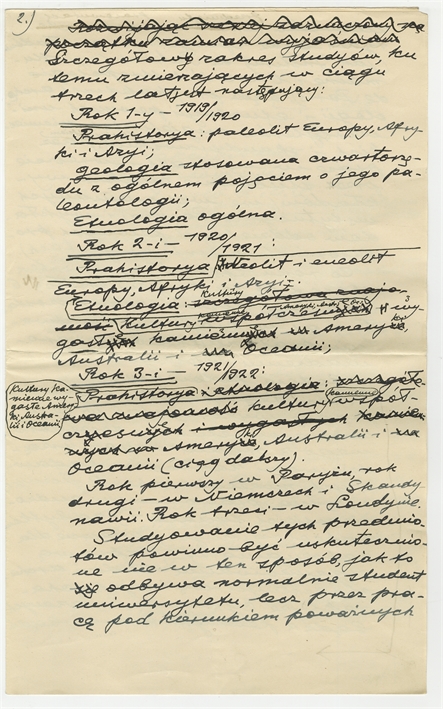 2.)
Szczegółowy zakres studyów, ku
temu zmierzających w ciągu
trzech lat jest następujący:
Rok 1-y – 1919/1920
Prahistorya: paleolit Europy, Afry-
ki i Azyi;
geologia stosowana czwartorzę-
du z ogólnem pojęciem o jego pa-
leontologii;
Etnologia ogólna.
Rok 2-i – 1920/1921:
Prahistorya: neolit i eneolit
Europy, Afryki i Azyi.
Etnologia: szczegółowa znajo-
mość kultury współczesnych i wy-
gasłych Ameryki,
Australii i Oceanii;
Rok 3-i – 1921/1922:
Kultury ka-
mienne wy-
gasłe Amery-
ki, Austra-
lii i Oceanii
Prahistorya i etnologia:
kultury współ-
czesnych i wygasłych
w Ameryki, Australii i
Oceanii (ciąg dalszy).
Rok pierwszy w Paryżu, rok
drugi – w Niemczech i Skandy-
nawii. Rok trzeci – w Londynie.
Studyowanie tych przedmio-
tów powinno być uskutecznio-
ne nie w ten sposób, jak to
się odbywa normalnie student
uniwersytetu, lecz przez pra-
cę pod kierunkiem poważnych